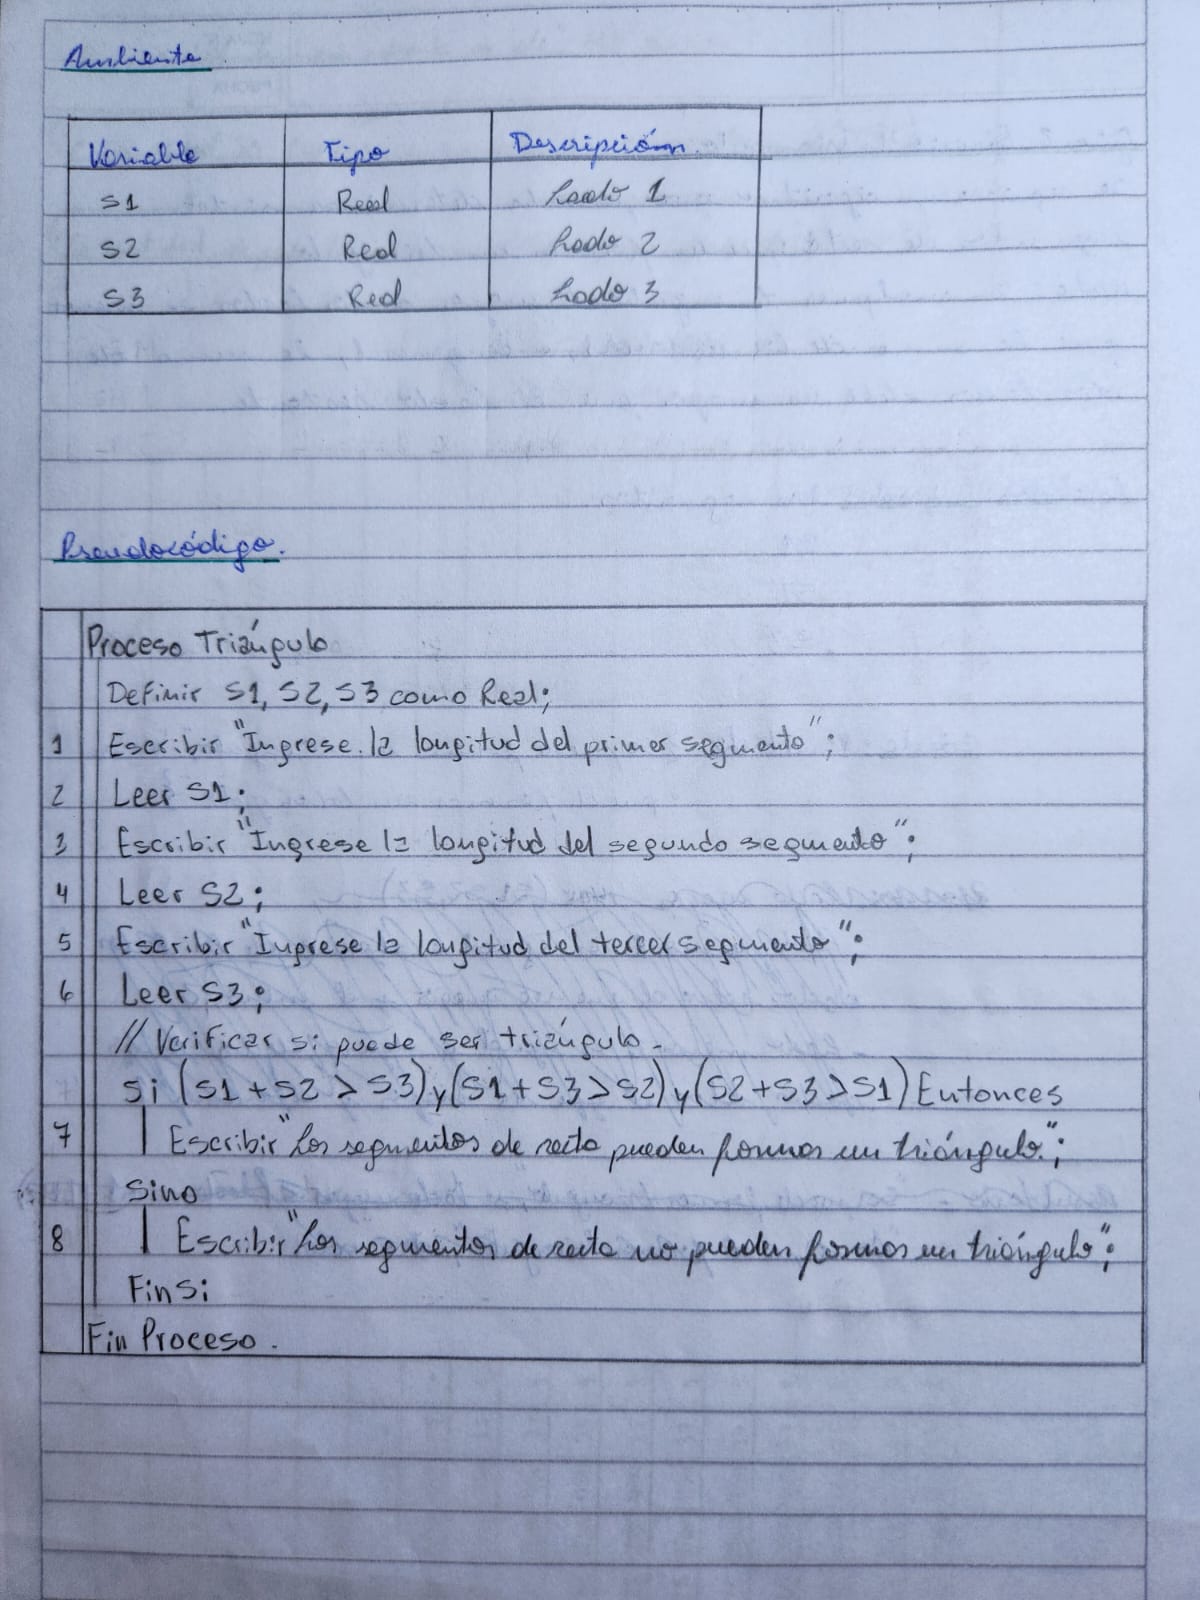 Ambiente
Variable Tipo Descripción
S1 Real Lado 1
S2 Real Lado 2
S3 Real Lado 3
Pseudocódigo.
Proceso Triángulo
Definir S1, S2, S3 como Real;
1 Escribir "Ingrese la longitud del primer segmento";
2 Leer S1;
3 Escribir "Ingrese la longitud del segundo segmento";
4 Leer S2;
5 Escribir "Ingrese la longitud del tercer segmento";
6 Leer S3;
// Verificar si puede ser triángulo.
Si (S1 + S2 > S3) y (S1 + S3 > S2) y (S2 + S3 > S1) Entonces
7 Escribir "Los segmentos de recta pueden formar un triángulo.";
Sino
8 Escribir "Los segmentos de recta no pueden formar un triángulo";
FinSi
Fin Proceso.